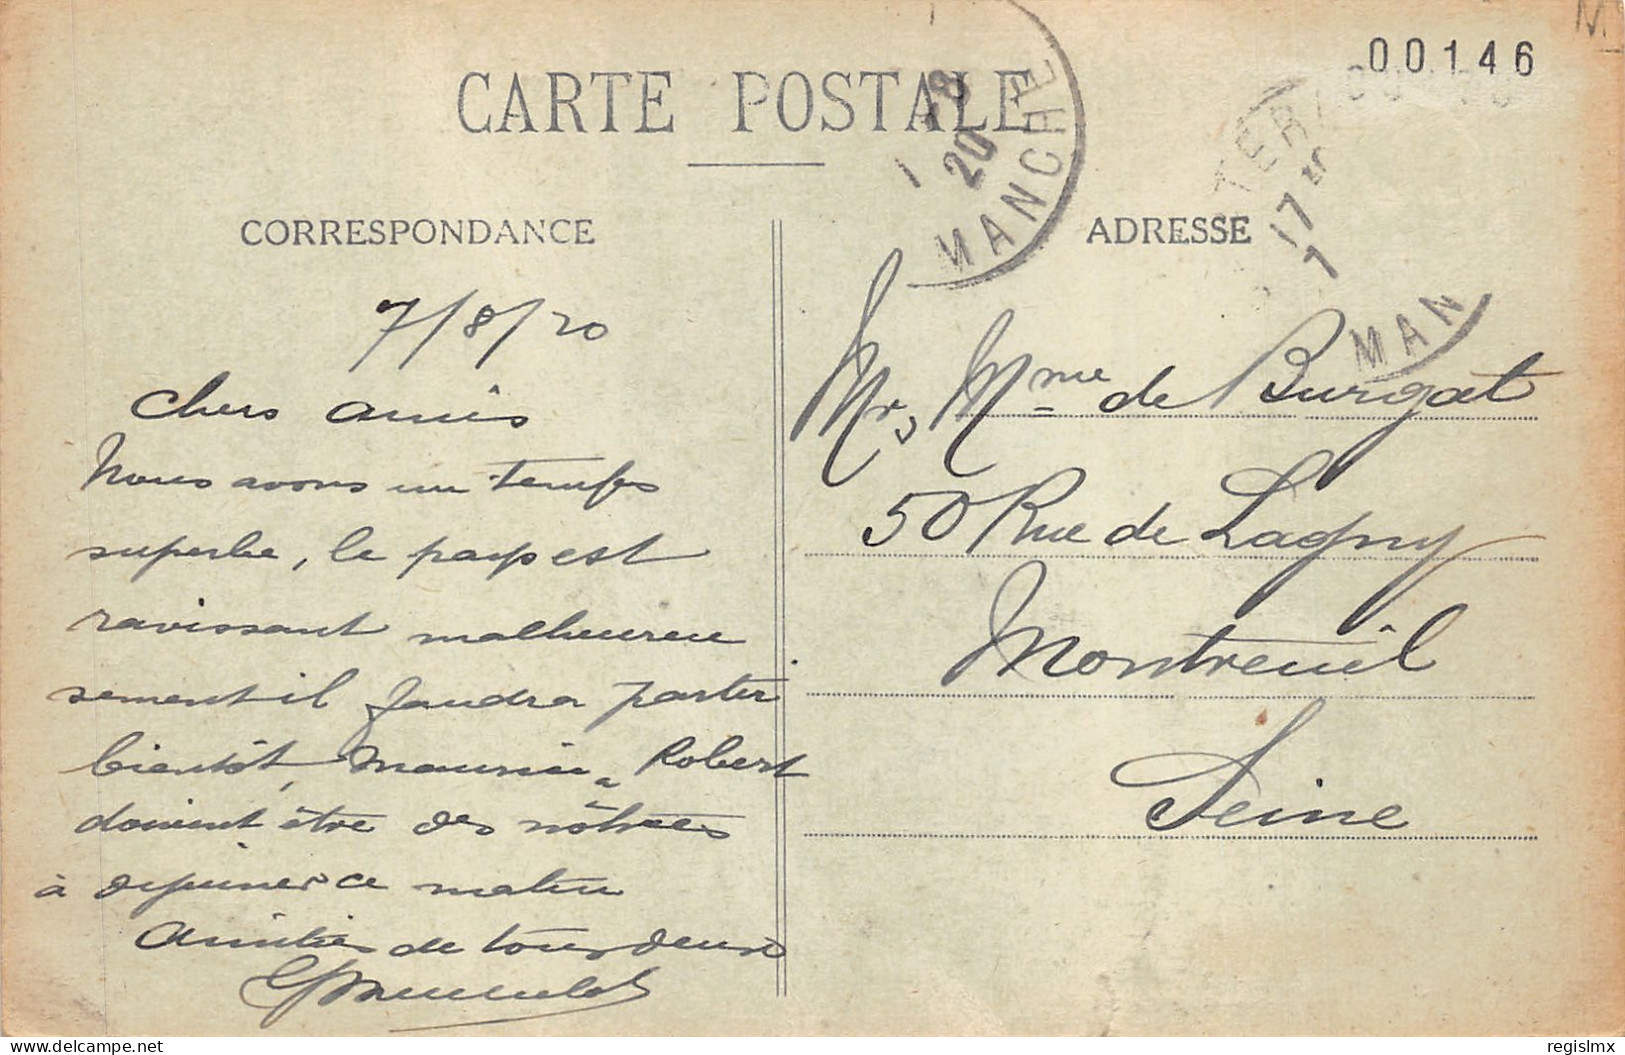 00146
CARTE POSTALE
8
20
MANCHE
17
7
MAN
CORRESPONDANCE
ADRESSE
7/8/20
Chers amis
Nous avons un temps
superbe, le pays est
ravissant malheureu
sement il faudra partir
bientôt, Maurice Robert
doivent être des nôtres
à dejeuner ce matin
Amitiés de tous deux
Mr, Mme de Burgat
50 Rue de Lagny
Montreuil
Seine
delcampe.net
regislmx